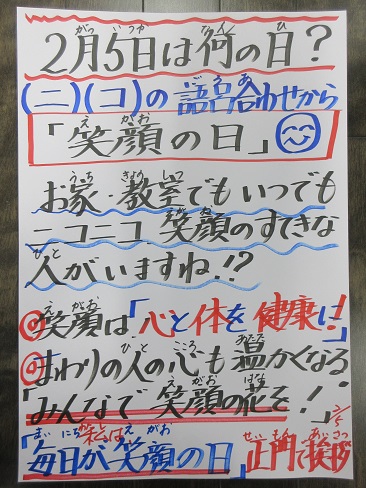 2月5日は何の日？
(ニ)(コ)の語呂合わせから
「笑顔の日」
お家・教室でもいつでも
ニコニコ笑顔のすてきな
人がいますね!?
◎笑顔は「心と体を健康に!」
◎まわりの人の心も温かくなる
「みんなで笑顔の花を!」
2/5
「毎日が笑顔の日」正門で挨拶